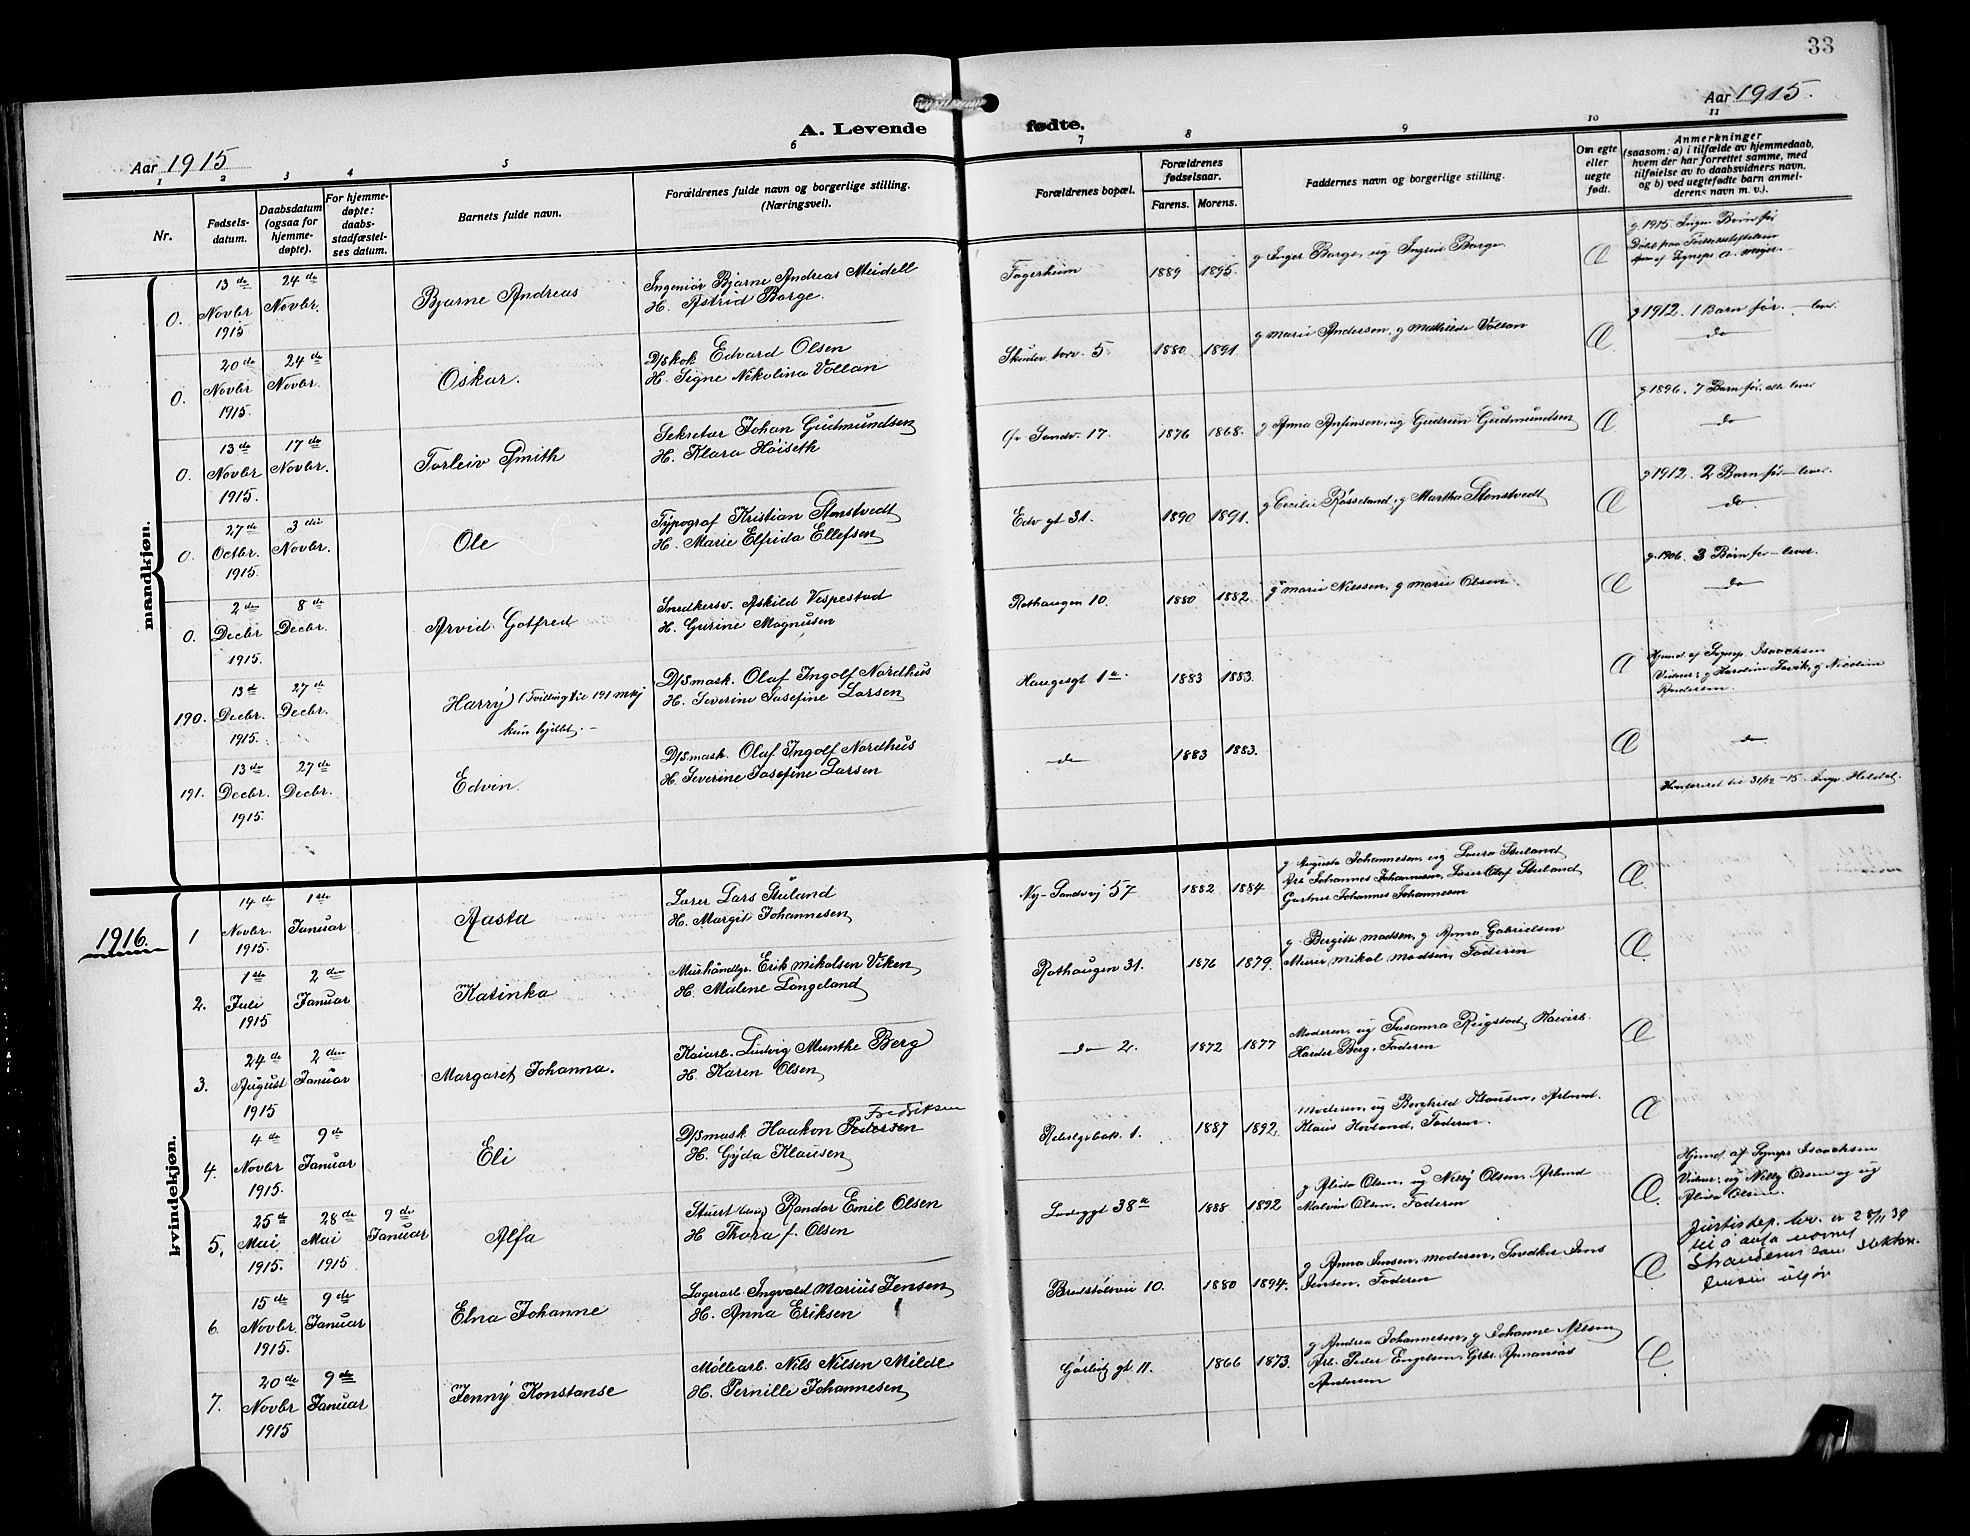 33
Aar 1915.
A. Levende fødte.
Aar 1915
1 2 3 4 5 6 7 8 9 10 11
Nr.
Fødsels-
datum.
Daabsdatum
(ogsaa for
hjemme-
døpte).
For hjemme-
døpte:
daabs-
stadfæstel-
ses datum.
Barnets fulde navn.
Forældrenes fulde navn og borgerlige stilling.
(Næringsvei).
Forældrenes bopæl.
Forældrenes
fødselsaar.
Farens. Morens.
Faddernes navn og borgerlige stilling.
Om egte
eller
uegte
født.
Anmerkninger
(saasom: a) i tilfælde av hjemmedaab,
hvem der har forrettet samme, med
tilføielse av to daabsvidners navn,
og b) ved uegtefødte barn anmel-
derens navn m. v.).
mandkjøn.
0. 13de Novbr 1915 24de Novbr. Bjarne Andreas
Ingeniør Bjarne Andreas Meidell
H. Astrid Borge.
Fagerheim 1889 1895. g Inger Borge, ug Ingrid Borge Æ
g 1915. Ingen Børn før
0. 20de Novbr 1915. 24de Novbr. Oskar.
D/skok Edvard Olsen
H. Signe Nikolina Vollan
5 1880 1891 g Marie Andersen, g Mathilde Vollan Æ
g 1912. 1 Barn før. – lever
do
0. 13de Novbr 1915. 17de Novbr. Torleiv Smith
Sekretær Johan Gudmundsen
H. Klara Høiseth
Øv Sandv. 17. 1876 1868. g Anna Anfinsen, ug Gudrun Gudmundsen Æ
g 1896. 7 Barn før. alle lever
do
0. 27de Octbr. 1915. 3die Novbr. Ole
Typograf Kristian Stenstvedt
H. Marie Elfrida Ellefsen
Edv gt 31. 1890 1891. g Cecilie Røsseland, g Martha Stenstvedt Æ
g 1912. 2 Barn før – lever.
do.
0. 2den Decbr 1915. 8de Decbr. Arvid Gotfred
Snedkersv. Askild Vespestad
H. Gurine Magnusen
Rothaugen 10. 1880 1882 g Marie Nilssen, g Marie Olsen Æ
g. 1906. 3 Børn før – lever.
do
190. 13de Decbr. 1915. 27de Decbr. Harry (Tvilling til 191 mkj
D/Smask. Olaf Ingolf Nordhus
H. Severine Josefine Larsen
Haugesgt 1a. 1883 1883. Æ
Hjmd. af Sognep. Isaachsen
191. 13de Decbr. 1915. 27de Decbr. Edvin.
D/Smask. Olaf Ingolf Nordhus
H. Severine Josefine Larsen
do 1883 1883. Æ do
Konfereret til 31/12 – 15.
1916.
kvindekjøn.
1 14de Novbr. 1915. 1ste Januar Aasta
Lærer Lars Stuland
H. Margit Johannesen
Ny-Sandvvj 57 1882 1884 g Augusta Johannesen, ug Laura Stuland,
Arb Johannes Johannesen, Lærer Olaf Stuland
Gartner Johannes Johannesen Æ
2. 1ste Juli 1915 2den Januar Katinka
Erik Mikalsen Viken
H. Malene Langeland
Rothaugen 31. 1876 1879. g Bergitte Madsen, g Anna Gabrielsen
Murer Mikal Madsen, Faderen Æ
3. 24de August 1915 2den Januar Margaret Johanna.
Kaiarb. Ludvig Munthe Berg
H. Karen Olsen
do 2. 1872 1877 Moderen, ug Susanna Reigstad, Kaiarb.
Harder Berg, Faderen Æ
4. 4de Novbr 1915. 9de Januar Eli
D/Smask Haakon Pedersen Fredriksen
H. Gyda Klausen
1. 1887 1892 Moderen, ug Borghild Klausen,
Klaus Hovland, Faderen. Æ
5. 25de Mai 1915. 28de Mai 1915 9de Januar Alfa
Stuert Randor Emil Olsen
H Thora f. Olsen
Ladeggt 38a 1888 1892 g Alida Olsen, ug Nelly Olsen,
Malvin Olsen, Faderen Æ.
Hjmd. af Sognep Isaachsen
Vidner: ug Nelly Olsen og ug
Alida Olsen.
6. 15de Novbr. 1915. 9de Januar Elna Johanne
Lagerarb. Ingvald Marius Jensen
H. Anna Eriksen
Bredstølsvei 10. 1880 1894. g Anna Jensen, Moderen, Snedker Jens
Jensen, Faderen Æ
Justisdep. bev. 28/11 39
til å anta navnet
7. 20de Novbr 1915 9de Januar Jenny Konstanse
Møllearb. Nils Nilsen Milde
H. Pernille Johannesen
gt 11. 1866 1873. g Andrea Johannesen, g Johanne Nilsen
Arb. Peder Engelsen, Ananias
Andersen Æ